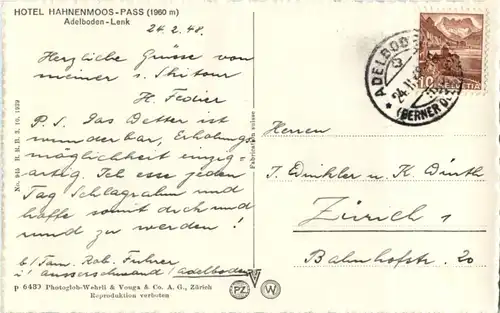 HOTEL HAHNENMOOS-PASS (1960 m)
Adelboden-Lenk
24. 2. 48.
Herzliche Grüsse von
meiner 1. Skitour
H. Federer
P.S. Das Wetter ist
wunderbar, Erholungs
möglichkeit einzig-
artig. Ich esse jeden
Tag Schlagrahm und
hoffe somit dick und
rund zu werden!
b/Fam. Rob. Fuhrer
i/ Ausserschwand/Adelboden
p 6489 Photoglob-Wehrli & Vouga & Co. A. G., Zürich
Reproduktion verboten
No. 945 B. R. B. 3. 10. 1939
Fabrication suisse
PZ
W
ADELBODEN
24. II.
(BERNER O
10
HELVETIA
Herren
J. Winkler u. K. Würth
Zürich 1
Bahnhofstr. 20